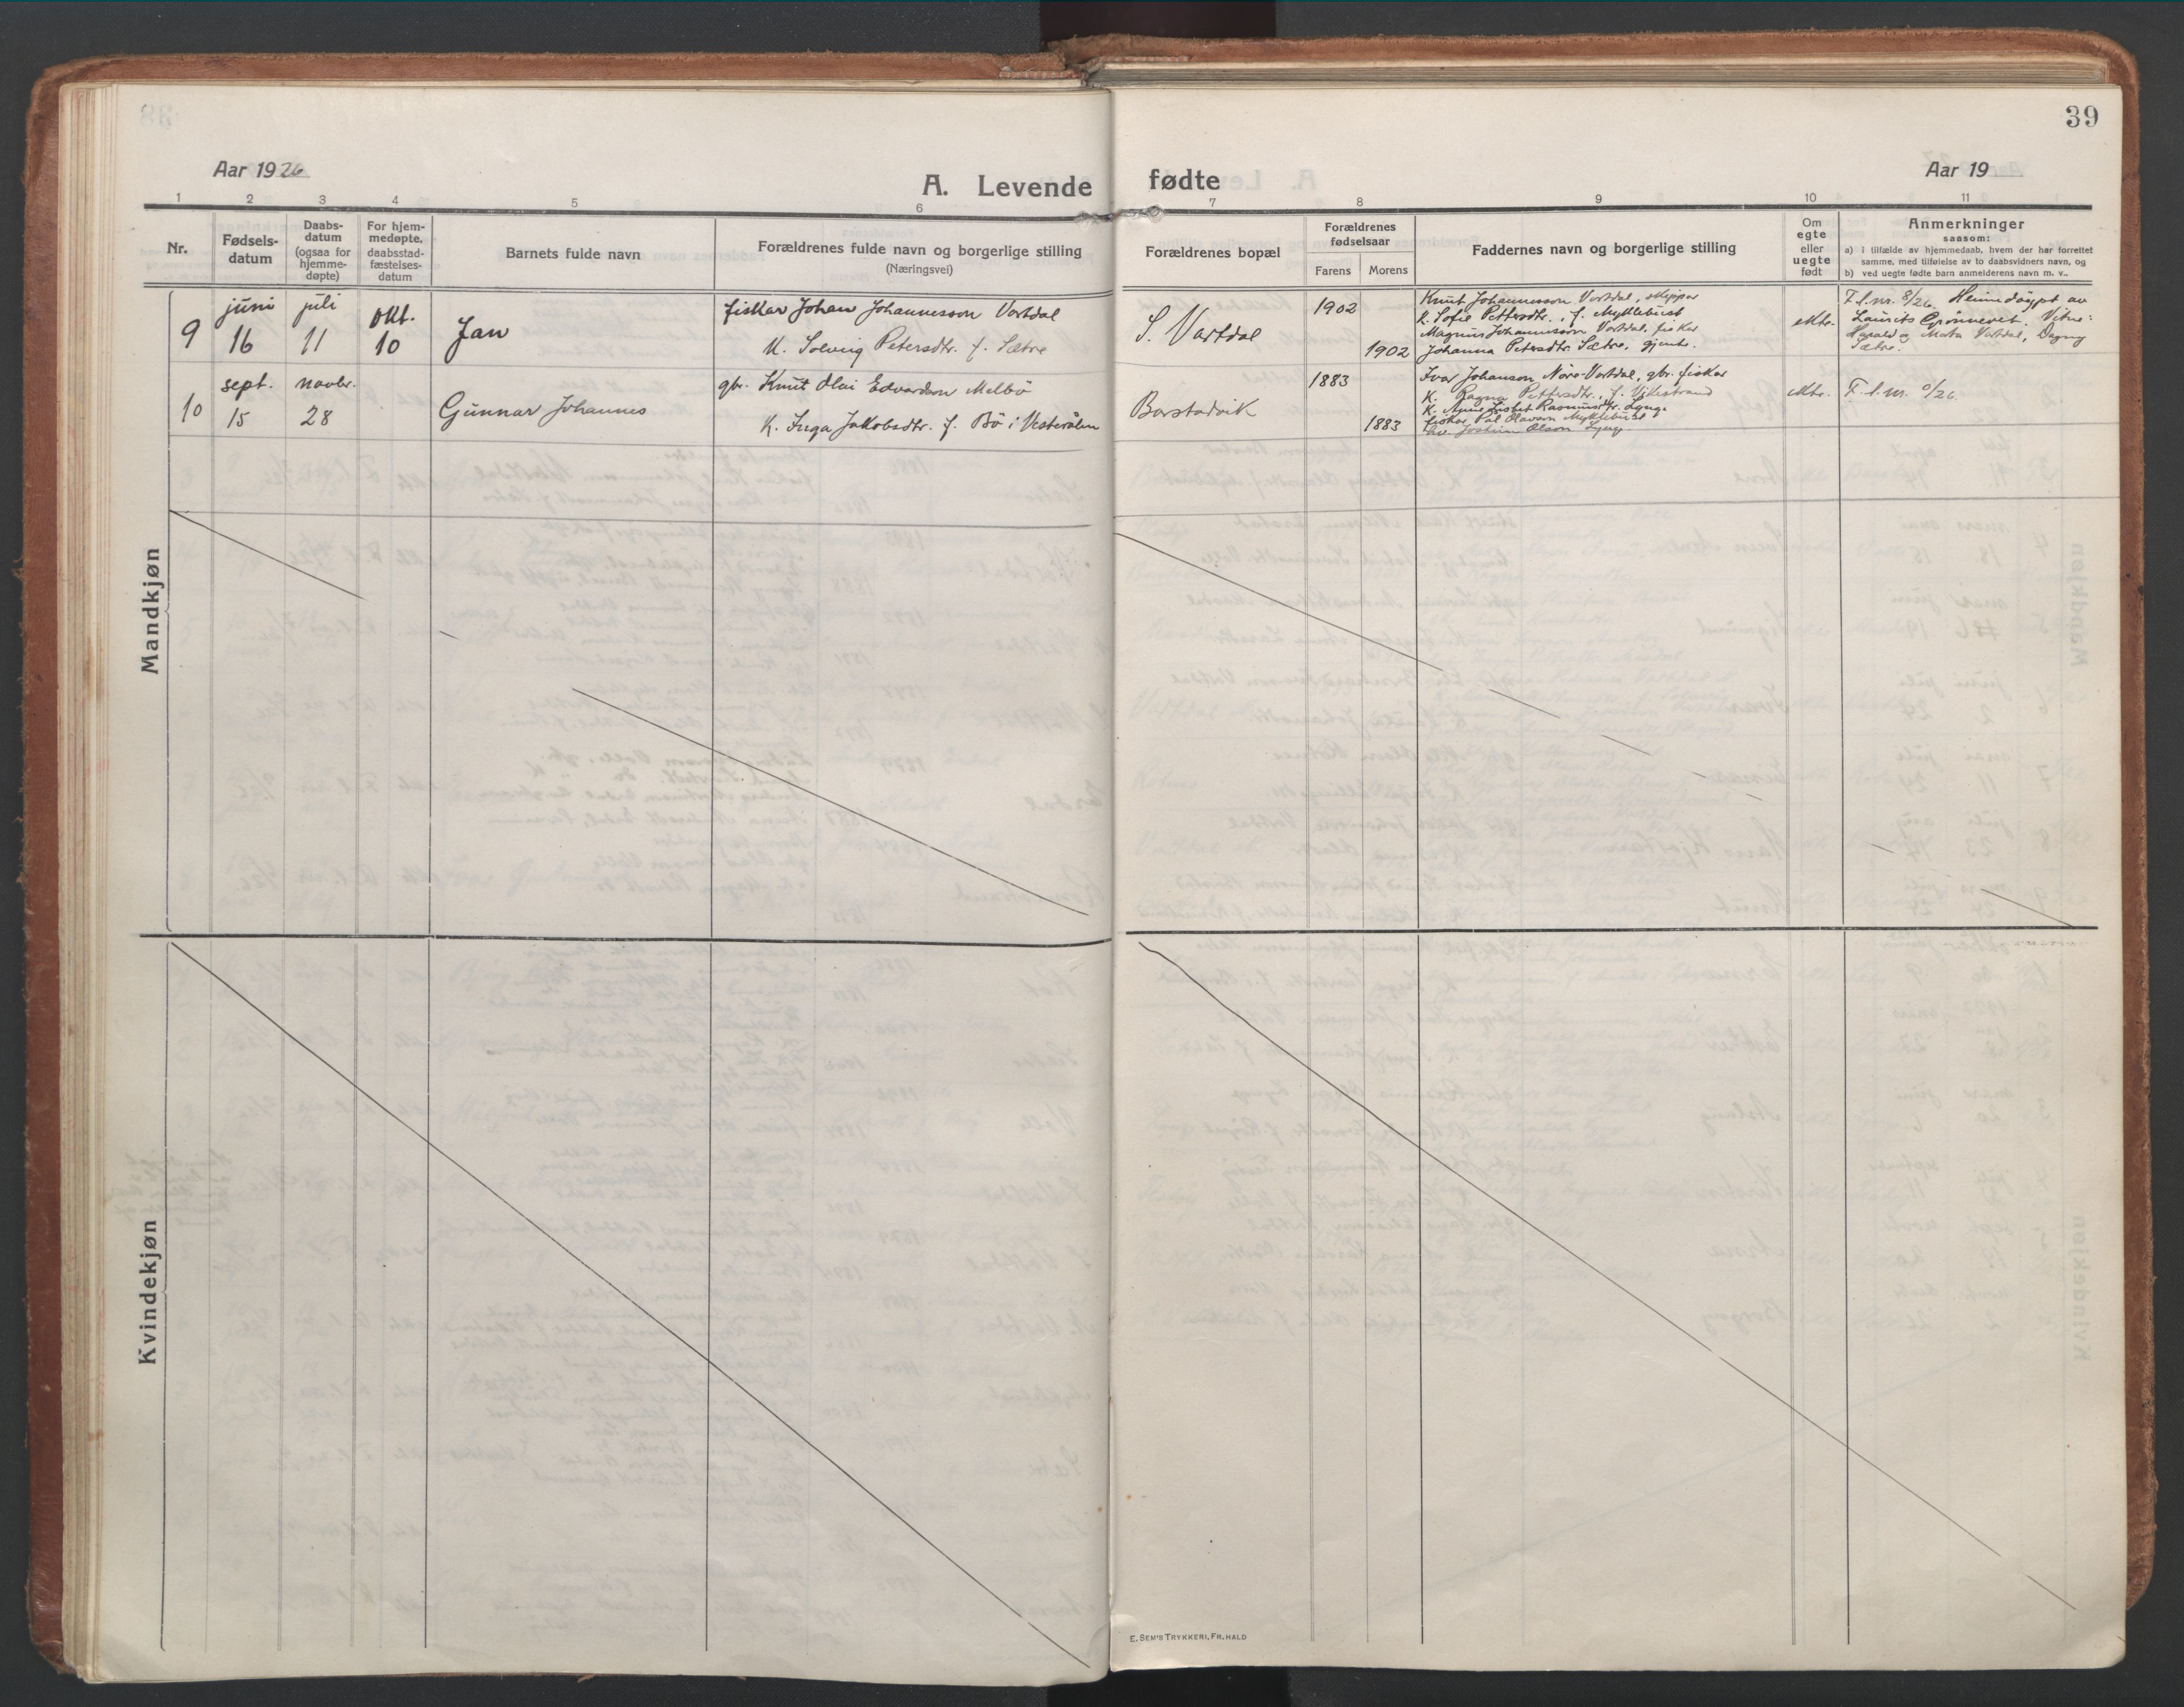 39
Aar 1926
A. Levende fødte
Aar 19
1 2 3 4 5 6 7 8 9 10 11
Nr.
Fødsels-
datum
Daabs-
datum
(ogsaa for
hjemme-
døpte)
For hjem-
medøpte,
daabsstad-
fæstelses-
datum
Barnets fulde navn
Forældrenes fulde navn og borgerlige stilling
(Næringsvei)
Forældrenes bopæl
Forældrenes
fødselsaar
Farens Morens
Faddernes navn og borgerlige stilling
Om
egte
eller
uegte
født
Anmerkninger
saasom:
a) i tilfælde av hjemmedaab, hvem der har forrettet
samme, med tilføielse av to daabsvidners navn, og
b) ved uegte fødte barn anmelderens navn m. v..
Mandkjøn
9
juni
16
juli
11
okt.
10
Jan
fiskar Johan Johannesson Vartdal
K. Solveig Petersdtr. f. Sætre
S. Vartdal
1902
1902
Knut Johannesson Vartdal, skippar
K. Sofie Pettersdtr., f. Myklebust
Magnus Johannesson Vartdal, fiskar
Johanna Petersdtr. Sætre, gjente.
ekte.
F.l.nr. 8/26. Heimedøypt av
Laurits Grønnevet. Vitne:
Harald og Marta Vartdal, Dagny
Sætre.
10
sept.
15
novbr.
28
Gunnar Johannes
gbr. Knut Olai Edvardson Melbö
K. Inga Jakobsdtr. f. Bö i Vesterålen
Barstadvik
1883
1883
Ivar Johanson Nore-Vartdal, gbr. fiskar
K. Ragna Pettersdtr., f. Vikestrand
K. Anne Lisbet Rasmusdtr. Lyngе
fiskar Pål Olavson Myklebust
Olson
ekte.
F.l.nr. 0/26.
Kvindekjøn
E. SEM'S TRYKKERI, FR. HALD